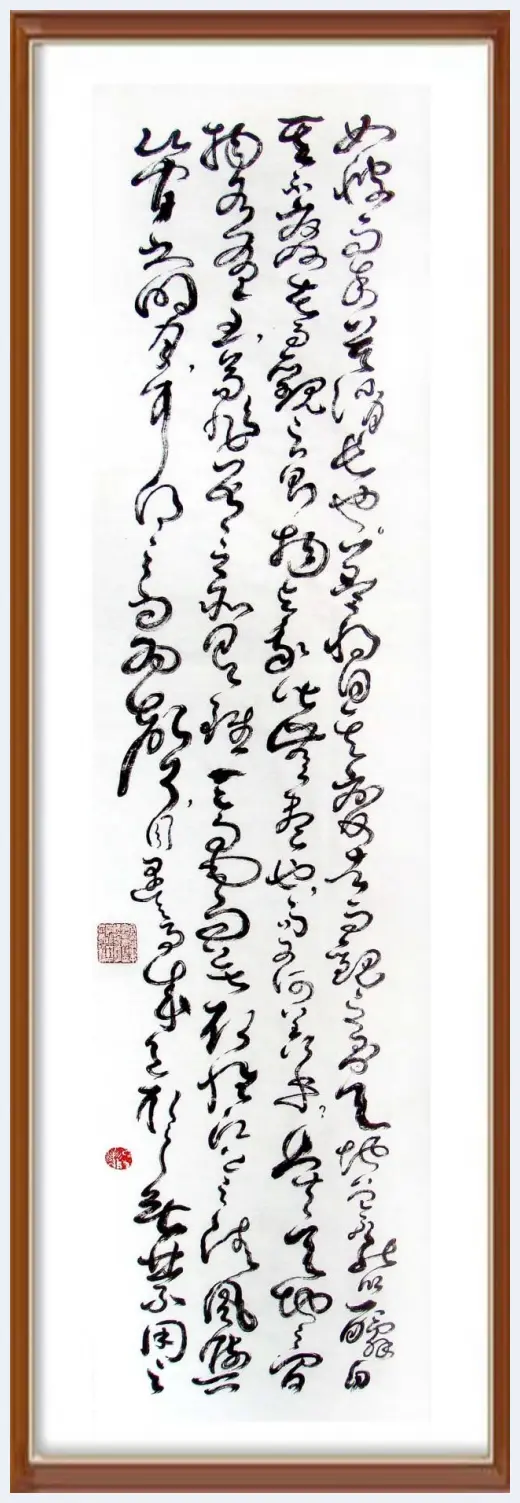 如彼而卒莫消長也盖將自其變者而觀之則天地曾不能以一瞬自
其不變者而觀之則物與我皆無盡也而又何羨乎且夫天地之間
物各有主苟非吾之所有雖一毫而莫取惟江上之清風與
山間之明月耳得之而為聲目遇之而成色取之無禁用之